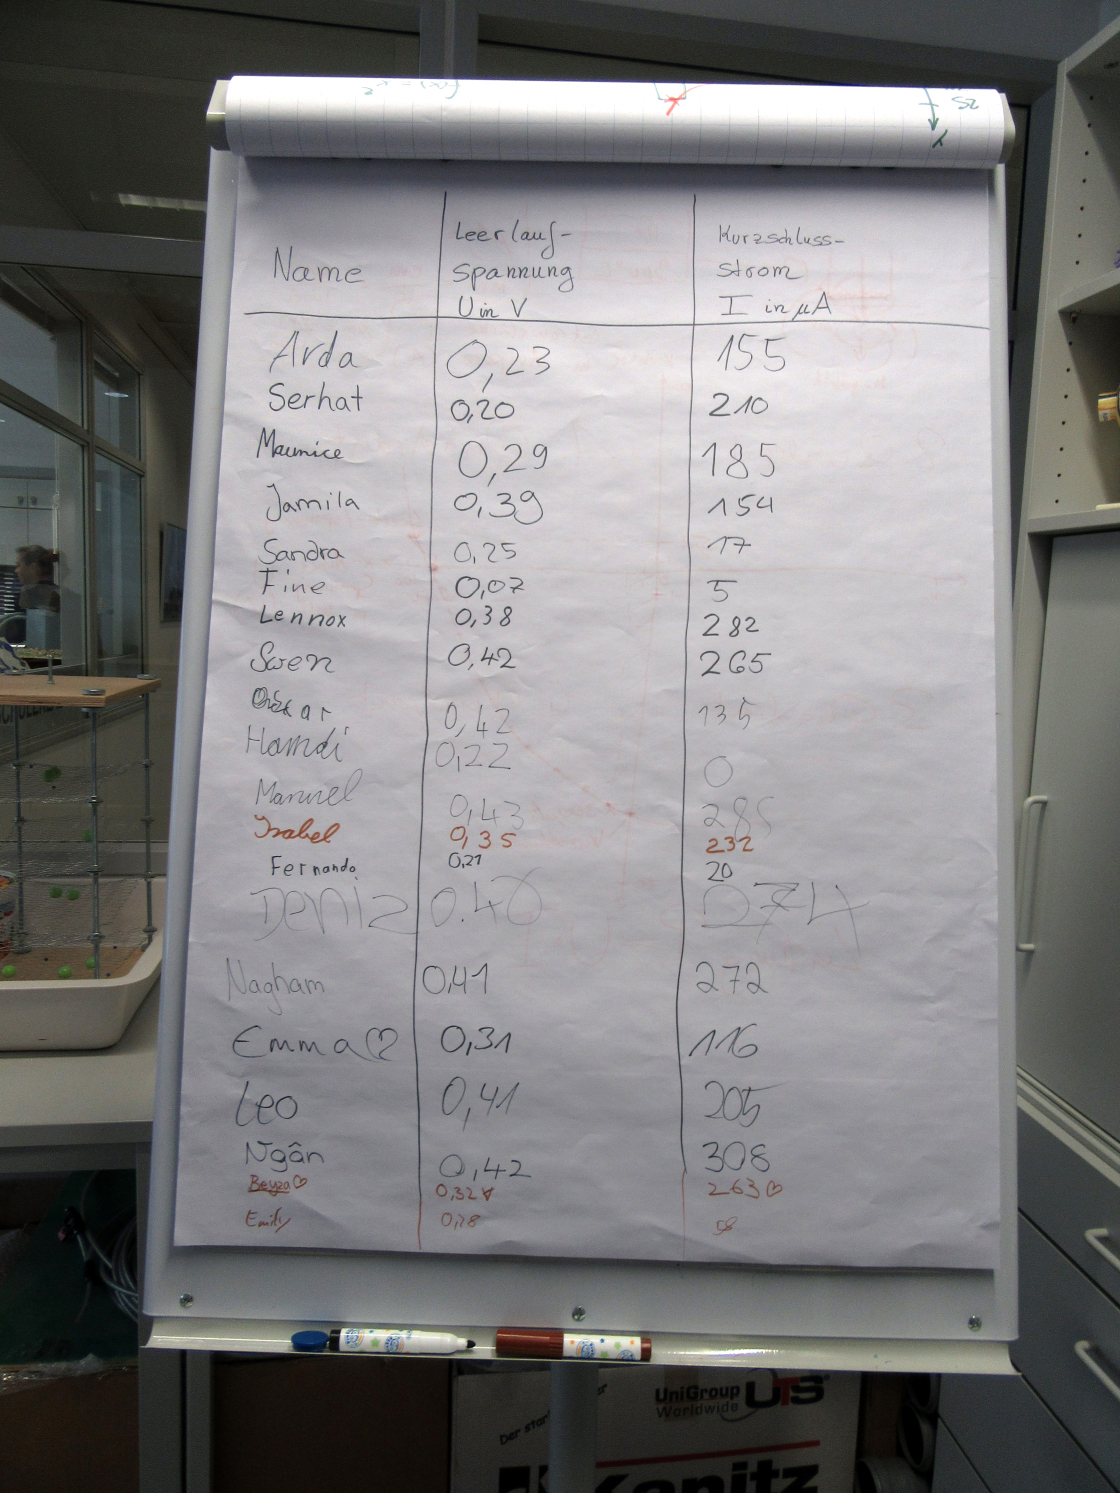 Name
Leerlauf-
spannung
U in V
Kurzschluss-
strom
I in µA
Arda 0,23 155
Serhat 0,20 210
Maurice 0,29 185
Jamila 0,39 154
Sandra 0,25 17
Fine 0,07 5
Lennox 0,38 282
Swen 0,42 265
0,42 135
Hamdi 0,22 0
Manuel 0,43 285
Isabel 0,35 232
Fernando 0,21 20
Deniz 0.40 274
Nagham 0,41 272
Emma♡ 0,31 116
Leo 0,41 205
Ngân 0,42 308
Beyza♡ 0,32 263♡
Emily
UniGroup
Worldwide UTS
Der